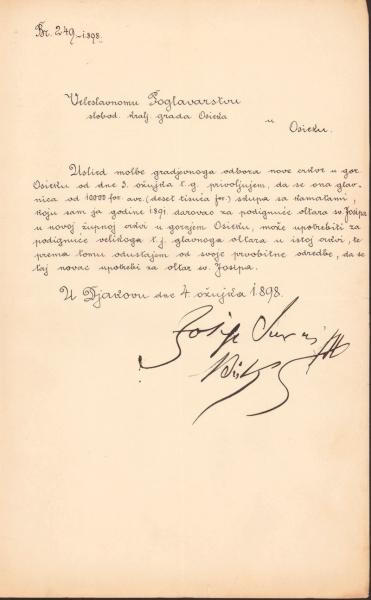 Br. 249-1898.
Veleslavnomu Poglavarstvu
slobod. kralj. grada Osieka
u
Osieku.
Uslied molbe gradjevnoga odbora nove crkve u gor.
Osieku od dne 3. ožujka t.g. privoljujem, da se ona glav-
nica od 10000 for. avr. (deset tisuća for.) skupa sa kamatami,
koju sam ja godine 1891 darovao za podignuće oltara sv. Josipa
u novoj župnoj crkvi u gornjem Osieku, može upotrebiti za
podignuće velikoga t.j. glavnoga oltara u istoj crkvi, te
prema tomu odustajem od svoje prvobitne odredbe, da se
taj novac upotrebi za oltar sv. Josipa.
U Djakovu dne 4. ožujka 1898.
Josip